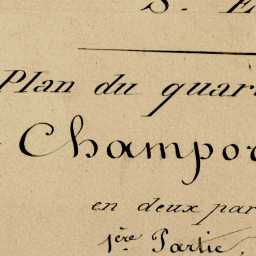 S. E
Plan du quar
Champor
en deux par
1ère Partie.